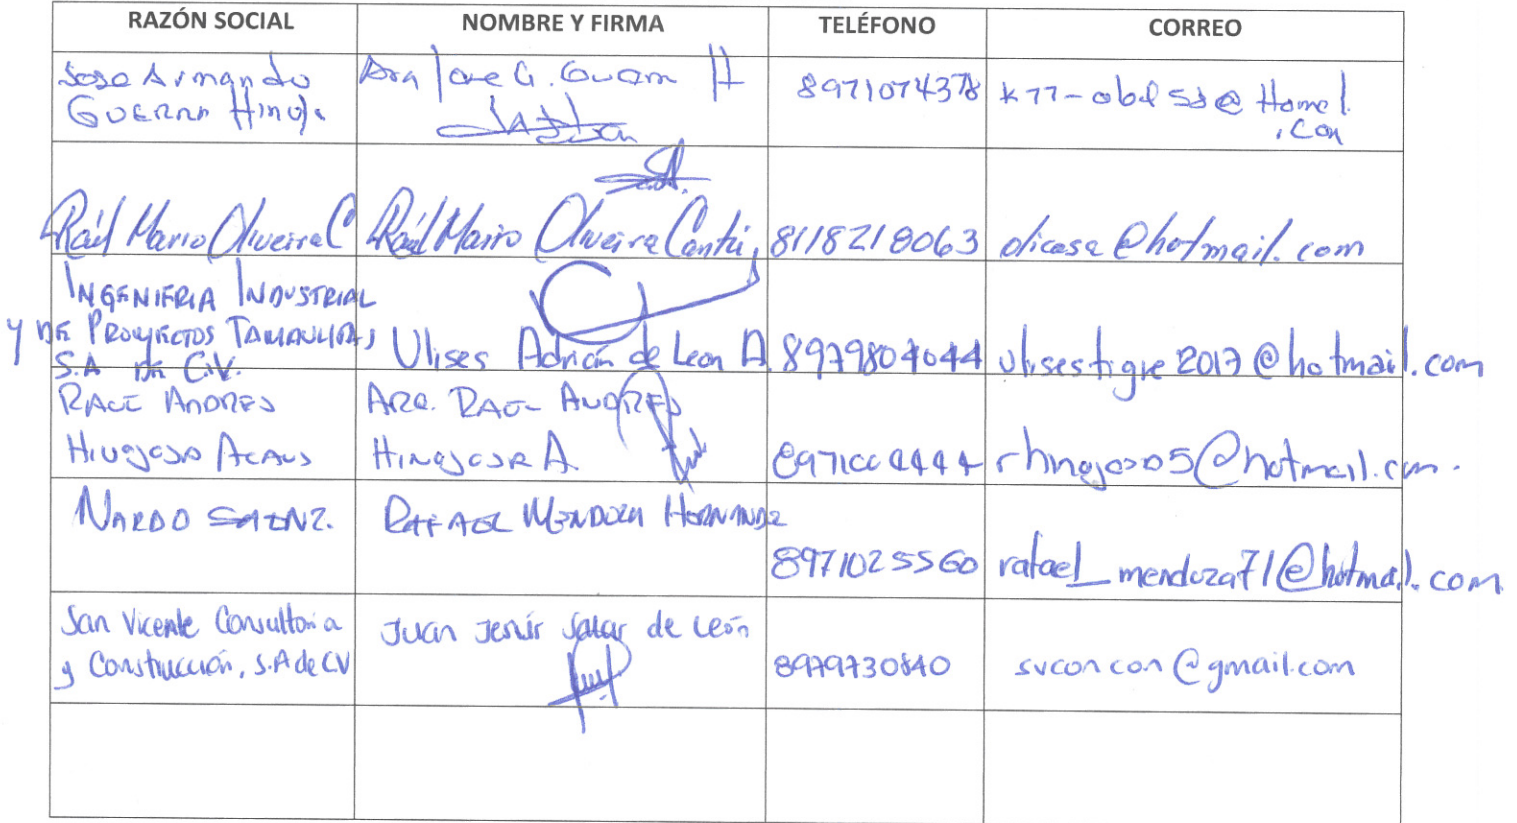 RAZÓN SOCIAL NOMBRE Y FIRMA TELÉFONO CORREO
Jose Armando
GUERRA Hinoj.
8971074378
.Con
Raúl Mario Oliveira C Raúl Mario Oliveira Cantú, 8118218063 olicasa@hotmail.com
INGENIERIA INDUSTRIAL
Y DE PROYECTOS TAMAULIPAS
S.A DE C.V.
Ulises Adrián de Leon A 8979804044 ulisestigre2017@hotmail.com
RAUL ANDRES
HINOJOSA
ARQ. RAUL ANDRES
HINOJOSA A.
NARDO SAENZ.
RAFAEL MENDOZA HERNANDZ
8971025560 rafael_mendoza71@hotmail.com
San Vicente Consultoria
y Construcción, S.A de CV
Juan Jenir Salas de León
8979730840 svconcon@gmail.com